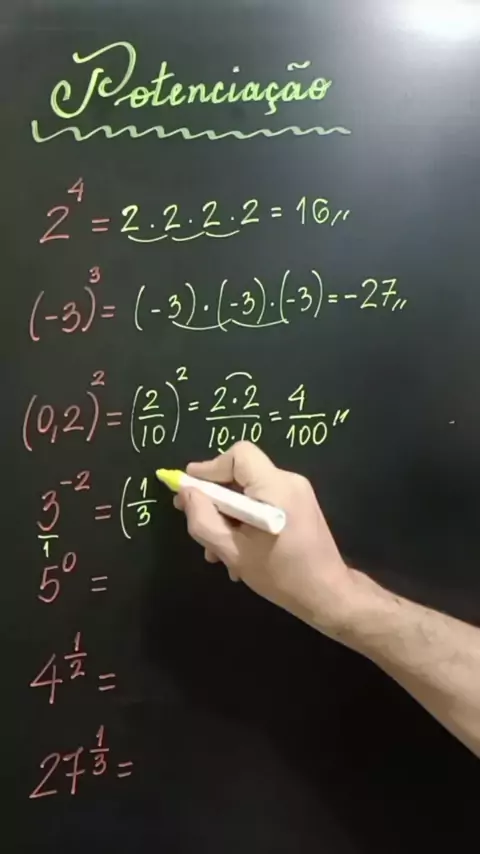 Potenciação
2⁴ = 2 . 2 . 2 . 2 = 16,,
(-3)³ = (-3) . (-3) . (-3) = -27,,
(0,2)² = (2/10)² = 2 . 2/10 . 10 = 4/100 ,,
3⁻²/1 = (1/3
5⁰ =
4^1/2 =
27^1/3 =